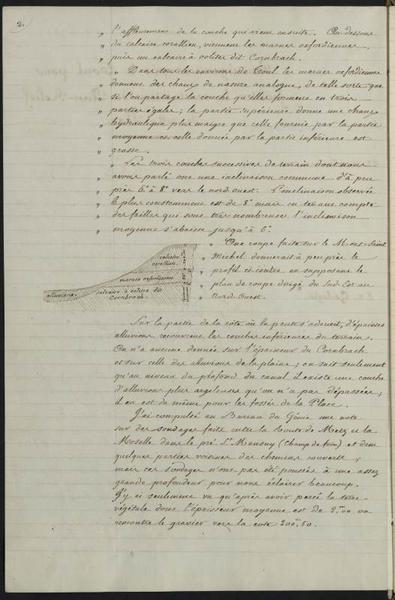 2.
" l'affleurement de la couche qui vient ensuite. Au-dessous
" du calcaire corallien, viennent les marnes oxfordiennes
" puis un calcaire à oolites dit Cornbrach.
" Dans tous les environs de Toul les marnes oxfordiennes
" donnent des chaux de nature analogue, de telle sorte que
" si l'on partage la couche qu'elles forment en trois
" parties égales; la partie supérieure donne une chaux
" hydraulique plus maigre que celle fournie par la partie
" moyenne et celle donnée par la partie inférieure est
" grasse.
" Les trois couches successives de terrain dont nous
" avons parlé ont une inclinaison commune d'à peu
" près 6° à 8° vers le nord ouest. L'inclinaison observée
" le plus constamment est de 8° mais en tenant compte
" des failles qui sont très nombreuses l'inclinaison
" moyenne s'abaisse jusqu'à 6°.
Une coupe faite sur le Mont Saint
Michel donnerait à peu près le
profil ci-contre, en supposant le
plan de coupe dirigé du Sud Est au
Nord Ouest.
calcaire
corallien
marnes oxfordiennes
calcaire à oolites dit
Cornbrach
alluvions
Sur la partie de la côte où la pente s'adoucit, d'épaisses
alluvions recouvrent les couches inférieures du terrain.
On n'a aucune donnée sur l'épaisseur du Cornbrach
et sur celle des alluvions de la plaine; on sait seulement
qu'au niveau du plafond du canal il existe une couche
d'alluvions plus argileuses qu'on n'a pas dépassée;
il en est de même pour les fossés de la Place.
J'ai compulsé au Bureau du Génie une note
sur des sondages faits entre la route de Metz et la
Moselle dans le pré St. Mansuy (Champ de foin) et dans
quelques parties voisines des chemins couverts,
mais ces sondages n'ont pas été poussés à une assez
grande profondeur pour nous éclairer beaucoup.
J'y ai seulement vu qu'après avoir percé la terre
végétale dont l'épaisseur moyenne est de 2m00 on
rencontre le gravier vers la cote 200.50.